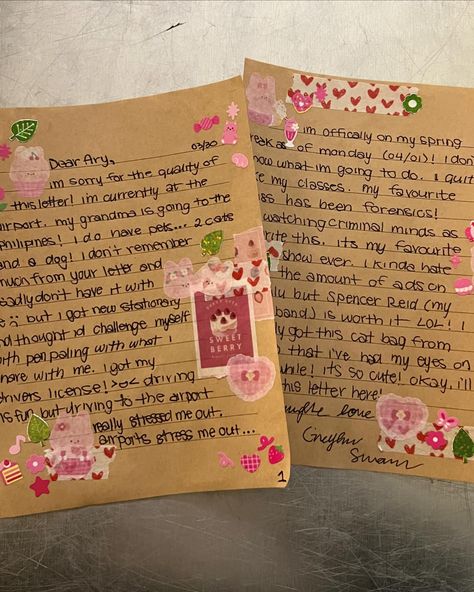 03/30
Dear Ary,
im sorry for the quality of
this letter! i'm currently at the
airport. my grandma is going to the
Philipines! I do have pets... 2 cats
and a dog! I don't remember
much from your letter and
don't have it with
me :( but I got new stationary
and thought id challenge myself
with penpaling with what i
have with me. I got my
drivers license! >.< driving
is fun but driving to the airport
really stressed me out.
airports stress me out...
1
SWEET
BERRY
im offically on my spring
break as of monday (04/01)! I don't
know what im going to do. i quite
like my classes. my favourite
class has been forensics!
watching criminal minds as
write this. its my favourite
show ever. I kinda hate
the amount of ads on
but Spencer Reid (my
husband) is worth it LOL! I
got this cat bag from
that i've had my eyes on
while! it's so cute! okay. i'll
this letter here!
love
Swan